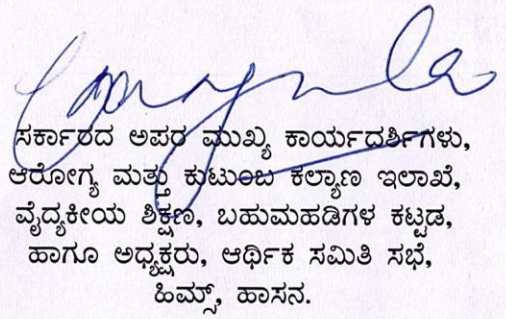 ಸರ್ಕಾರದ ಅಪರ ಮುಖ್ಯ ಕಾರ್ಯದರ್ಶಿಗಳು,
ಆರೋಗ್ಯ ಮತ್ತು ಕುಟುಂಬ ಕಲ್ಯಾಣ ಇಲಾಖೆ,
ವೈದ್ಯಕೀಯ ಶಿಕ್ಷಣ, ಬಹುಮಹಡಿಗಳ ಕಟ್ಟಡ,
ಹಾಗೂ ಅಧ್ಯಕ್ಷರು, ಆರ್ಥಿಕ ಸಮಿತಿ ಸಭೆ,
ಹಿಮ್ಸ್, ಹಾಸನ.